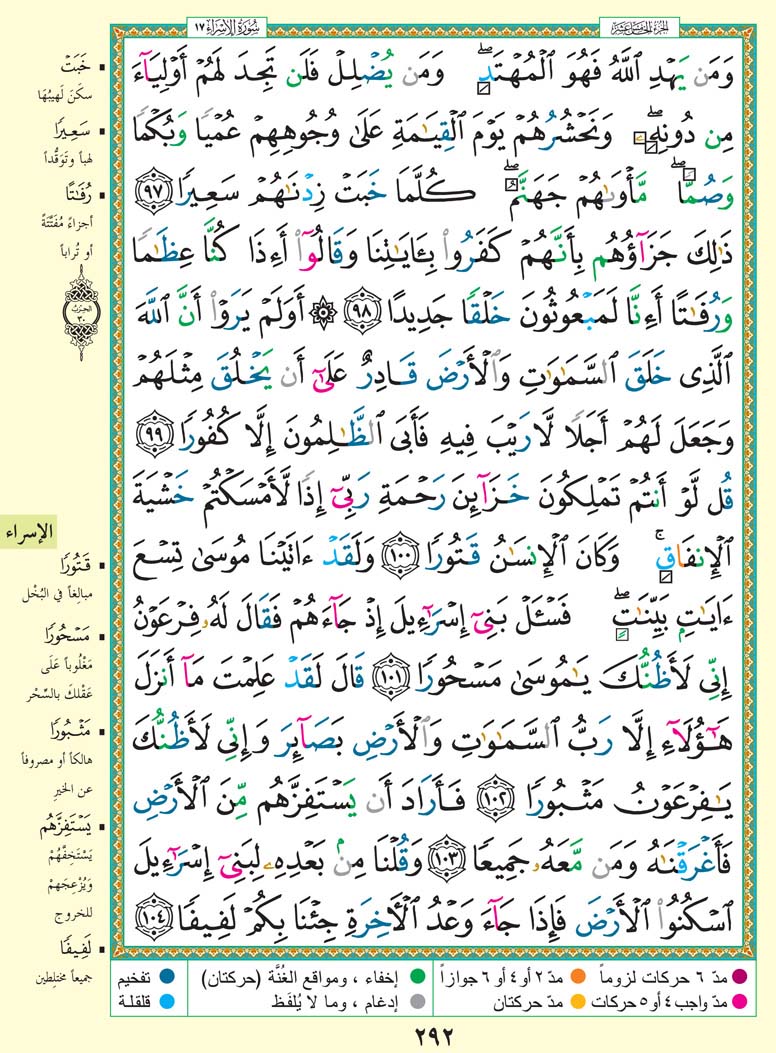 الجزء الخامس عشر
سورة الإسراء ١٧
وَمَن يَهْدِ ٱللَّهُ فَهُوَ ٱلْمُهْتَدِ ۖ وَمَن يُضْلِلْ فَلَن تَجِدَ لَهُمْ أَوْلِيَآءَ
مِن دُونِهِۦ ۖ وَنَحْشُرُهُمْ يَوْمَ ٱلْقِيَـٰمَةِ عَلَىٰ وُجُوهِهِمْ عُمْيًا وَبُكْمًا
وَصُمًّا ۖ مَّأْوَىٰهُمْ جَهَنَّمُ ۖ كُلَّمَا خَبَتْ زِدْنَـٰهُمْ سَعِيرًا ٩٧
ذَٰلِكَ جَزَآؤُهُم بِأَنَّهُمْ كَفَرُوا۟ بِـَٔايَـٰتِنَا وَقَالُوٓا۟ أَءِذَا كُنَّا عِظَـٰمًا
وَرُفَـٰتًا أَءِنَّا لَمَبْعُوثُونَ خَلْقًا جَدِيدًا ٩٨ ۞ أَوَلَمْ يَرَوْا۟ أَنَّ ٱللَّهَ
ٱلَّذِى خَلَقَ ٱلسَّمَـٰوَٰتِ وَٱلْأَرْضَ قَادِرٌ عَلَىٰٓ أَن يَخْلُقَ مِثْلَهُمْ
وَجَعَلَ لَهُمْ أَجَلًا لَّا رَيْبَ فِيهِ فَأَبَى ٱلظَّـٰلِمُونَ إِلَّا كُفُورًا ٩٩
قُل لَّوْ أَنتُمْ تَمْلِكُونَ خَزَآئِنَ رَحْمَةِ رَبِّىٓ إِذًا لَّأَمْسَكْتُمْ خَشْيَةَ
ٱلْإِنفَاقِ ۚ وَكَانَ ٱلْإِنسَـٰنُ قَتُورًا ١٠٠ وَلَقَدْ ءَاتَيْنَا مُوسَىٰ تِسْعَ
ءَايَـٰتٍۭ بَيِّنَـٰتٍ ۖ فَسْـَٔلْ بَنِىٓ إِسْرَٰٓءِيلَ إِذْ جَآءَهُمْ فَقَالَ لَهُۥ فِرْعَوْنُ
إِنِّى لَأَظُنُّكَ يَـٰمُوسَىٰ مَسْحُورًا ١٠١ قَالَ لَقَدْ عَلِمْتَ مَآ أَنزَلَ
هَـٰٓؤُلَآءِ إِلَّا رَبُّ ٱلسَّمَـٰوَٰتِ وَٱلْأَرْضِ بَصَآئِرَ وَإِنِّى لَأَظُنُّكَ
يَـٰفِرْعَوْنُ مَثْبُورًا ١٠٢ فَأَرَادَ أَن يَسْتَفِزَّهُم مِّنَ ٱلْأَرْضِ
فَأَغْرَقْنَـٰهُ وَمَن مَّعَهُۥ جَمِيعًا ١٠٣ وَقُلْنَا مِنۢ بَعْدِهِۦ لِبَنِىٓ إِسْرَٰٓءِيلَ
ٱسْكُنُوا۟ ٱلْأَرْضَ فَإِذَا جَآءَ وَعْدُ ٱلْـَٔاخِرَةِ جِئْنَا بِكُمْ لَفِيفًا ١٠٤
خَبَتْ
سكَنَ لَهيبُهَا
سَعِيرًا
لهباً وتَوَقُّداً
رُفَـٰتًا
أجزاءً مُفَتَّتَةً
أو تُراباً
الحزب
٣٠
الإسراء
قَتُورًا
مبالِغاً في البُخْل
مَسْحُورًا
مَغْلُوباً عَلَى
عَقْلكَ بالسِّحْر
مَثْبُورًا
هالكاً أو مصروفاً
عن الخيرِ
يَسْتَفِزَّهُم
يَسْتَخِفَّهُمْ
وَيُزْعِجَهمْ
للخروج
لَفِيفًا
جميعاً مختلِطين
مدّ ٦ حركات لزوماً
مدّ ٢ أو ٤ أو ٦ جوازاً
إخفاء ، ومواقع الغُنَّة (حركتان)
تفخيم
مدّ واجب ٤ أو ٥ حركات
مدّ حركتان
إدغام ، وما لا يُلفَظ
قلقلة
٢٩٢